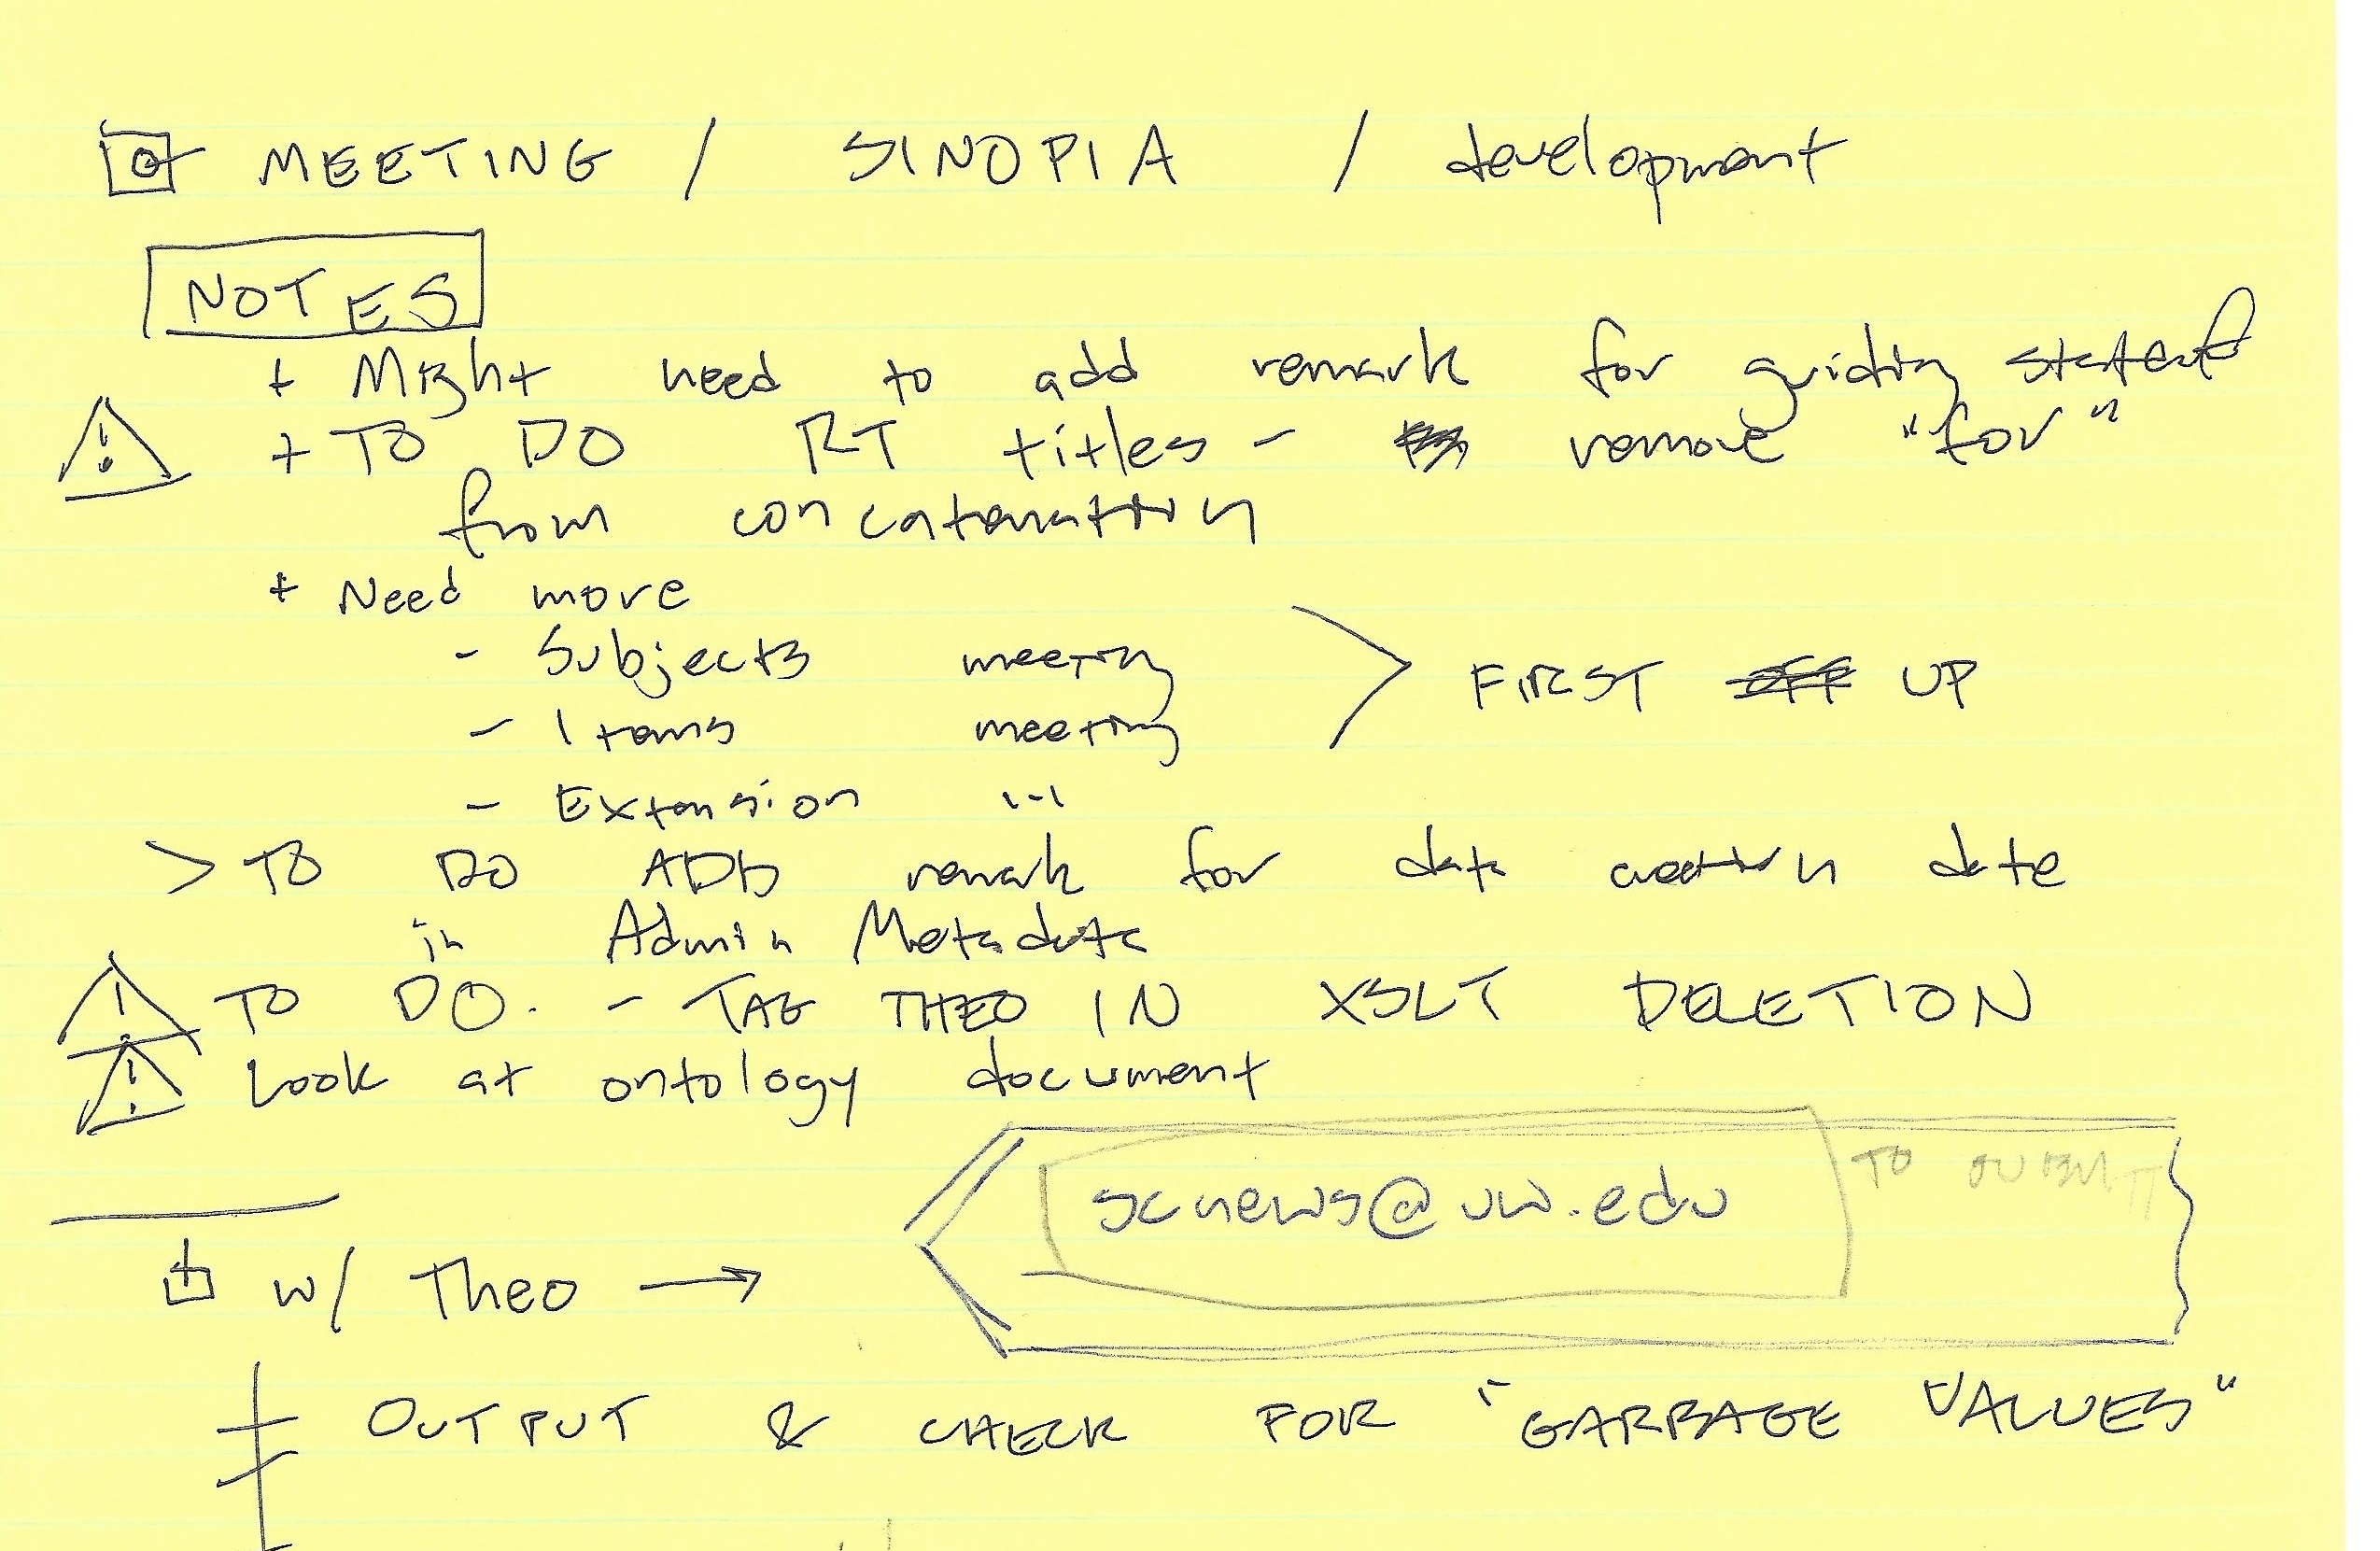 MEETING / SINOPIA / development
NOTES
+ Might need to add remark for guiding
+ TO DO RT titles - remove "for"
from concatenation
+ Need more
- Subjects meeting
- Items meeting
FIRST UP
- Extension ...
> TO DO ADD remark for data creation date
in Admin Metadata
TO DO. - TAG THEO IN XSLT DELETION
Look at ontology document
scnews@uw.edu TO
w/ Theo →
+ OUTPUT & CHECK FOR "GARBAGE VALUES"